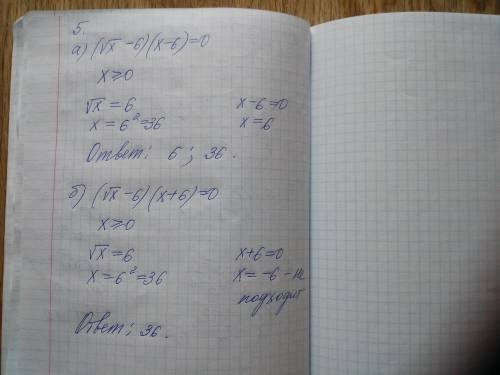 5.
а) (√x - 6)(x - 6) = 0
x ≥ 0
√x = 6 x - 6 = 0
x = 6² = 36 x = 6
Ответ: 6; 36.
б) (√x - 6)(x + 6) = 0
x ≥ 0
√x = 6 x + 6 = 0
x = 6² = 36 x = -6 - не
подходит
Ответ: 36.